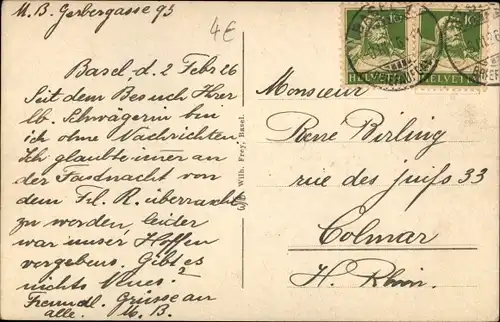 M. B. Gerbergasse 93
4€
Basel, d. 2 Febr 26
Seit dem Besuch Ihrer
lb. Schwägerin bin
ich ohne Nachrichten.
Ich glaubte imer an
der Fasdnacht von
dem Frl. R. überrascht
zu werden, leider
war unser Hoffen
vergebens. Gibt es
nichts Neues?
Freundl. Grüsse an
alle. M. B.
Wilh. Frey, Basel.
10 10
HELVETIA HELVETIA
Monsieur
René Birling
rue des juifs 33
Colmar
H. Rhin.